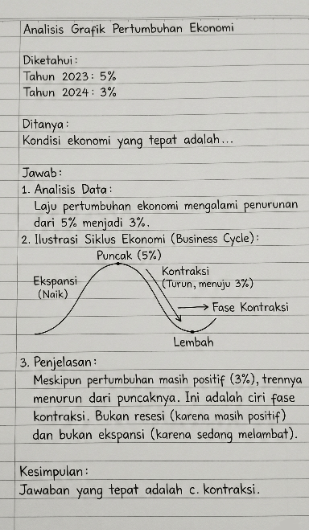 Analisis Grafik Pertumbuhan Ekonomi
Diketahui:
Tahun 2023: 5%
Tahun 2024: 3%
Ditanya:
Kondisi ekonomi yang tepat adalah...
Jawab:
1. Analisis Data:
Laju pertumbuhan ekonomi mengalami penurunan
dari 5% menjadi 3%.
2. Ilustrasi Siklus Ekonomi (Business Cycle):
Puncak (5%)
Ekspansi
(Naik)
Kontraksi
(Turun, menuju 3%)
Fase Kontraksi
Lembah
3. Penjelasan:
Meskipun pertumbuhan masih positif (3%), trennya
menurun dari puncaknya. Ini adalah ciri fase
kontraksi. Bukan resesi (karena masih positif)
dan bukan ekspansi (karena sedang melambat).
Kesimpulan:
Jawaban yang tepat adalah c. kontraksi.